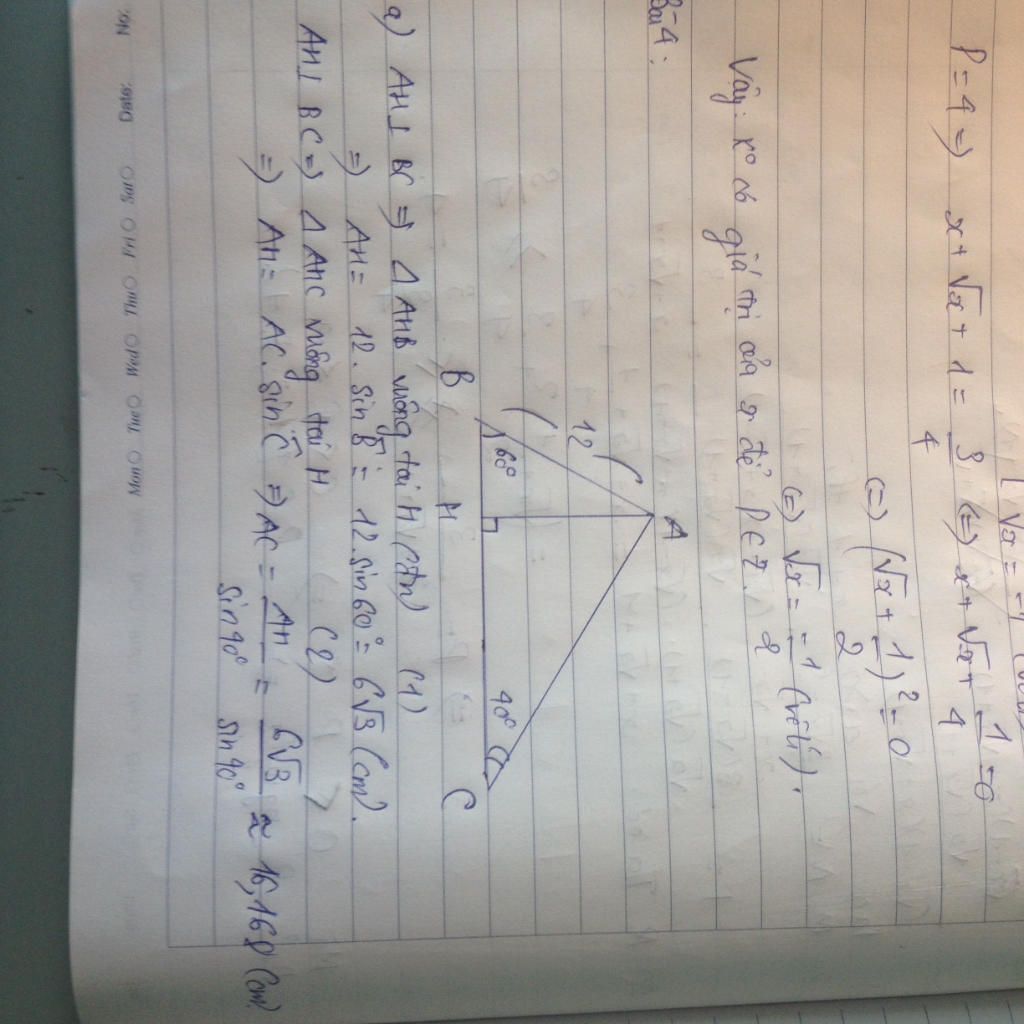 [ √x = -1
P = 4 => x + √x + 1 = 3/4 <=> x + √x + 1/4 = 0
(=) (√x + 1/2)² = 0
(=) √x = -1/2 (vô lí).
Vậy: K° có giá trị của x để P ∈ Z.
Bài 4:
A
12
60°
40°
B H C
a) AH ⊥ BC => Δ AHB vuông tại H (đn) (1)
=) AH = 12. sin B̂ = 12. sin 60° = 6√3 (cm).
AH ⊥ BC => Δ AHC vuông tại H (2)
=) AH = AC. sin Ĉ => AC = AH/sin 40° = 6√3/sin 40° ≈ 16,168 (cm)
No: Date: Mon Tue Wed Thu Fri Sat